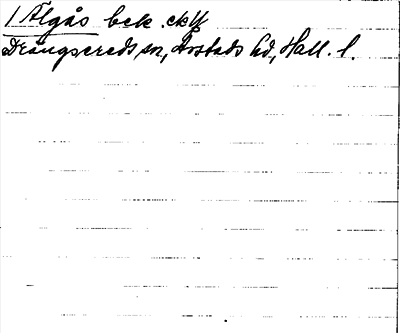 1 Älgås bek. ckff
Drängsereds sn, Årstads hd, Hall. l.